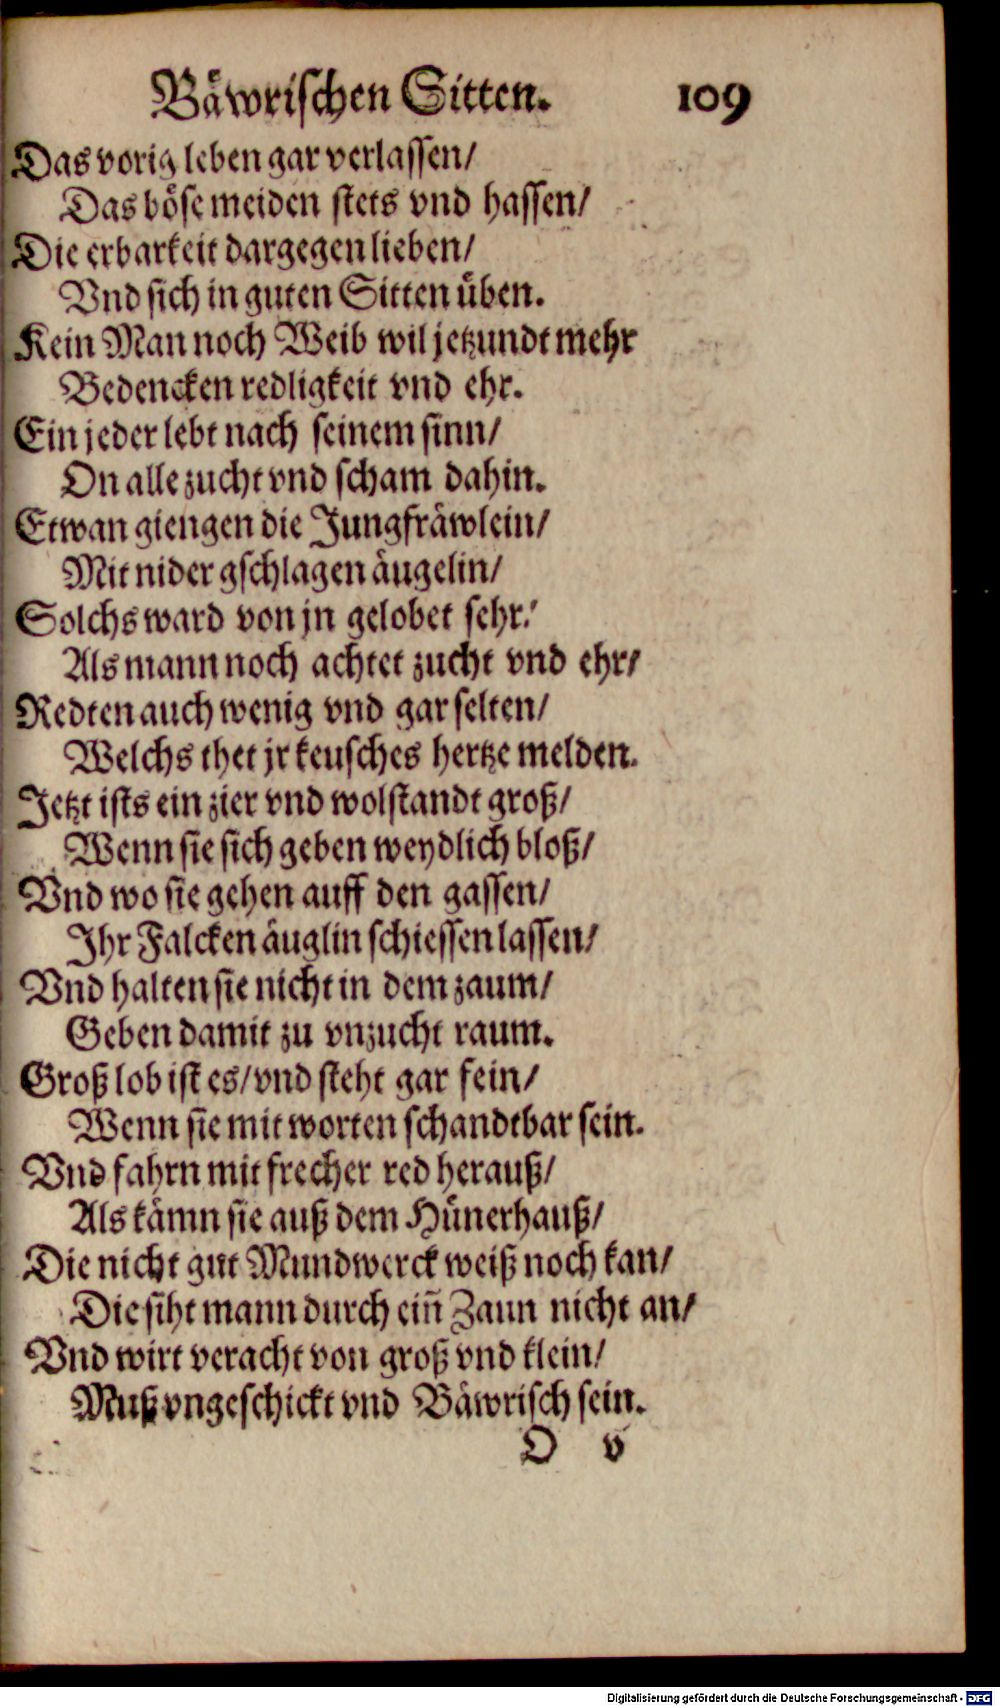 Bäwrischen Sitten. 109
Das vorig leben gar verlassen/
Das böse meiden stets vnd hassen/
Die erbarkeit dargegen lieben/
Vnd sich in guten Sitten üben.
Kein Man noch Weib wil jetzundt mehr
Bedencken redligkeit vnd ehr.
Ein jeder lebt nach seinem sinn/
On alle zucht vnd scham dahin.
Etwan giengen die Jungfräwlein/
Mit nider gschlagen äugelin/
Solchs ward von jn gelobet sehr/
Als mann noch achtet zucht vnd ehr/
Redten auch wenig vnd gar selten/
Welchs thet jr keusches hertze melden.
Jetzt ists ein zier vnd wolstandt groß/
Wenn sie sich geben weydlich bloß/
Vnd wo sie gehen auff den gassen/
Ihr Falcken äuglin schiessen lassen/
Vnd halten sie nicht in dem zaum/
Geben damit zu vnzucht raum.
Groß lob ist es/vnd steht gar fein/
Wenn sie mit worten schandtbar sein.
Vnd fahrn mit frecher red herauß/
Als kämn sie auß dem Hünerhauß/
Die nicht gut Mundwerck weiß noch kan/
Die siht mann durch ein̄ Zaun nicht an/
Vnd wirt veracht von groß vnd klein/
Muß vngeschickt vnd Bäwrisch sein.
O v
Digitalisierung gefördert durch die Deutsche Forschungsgemeinschaft - DFG